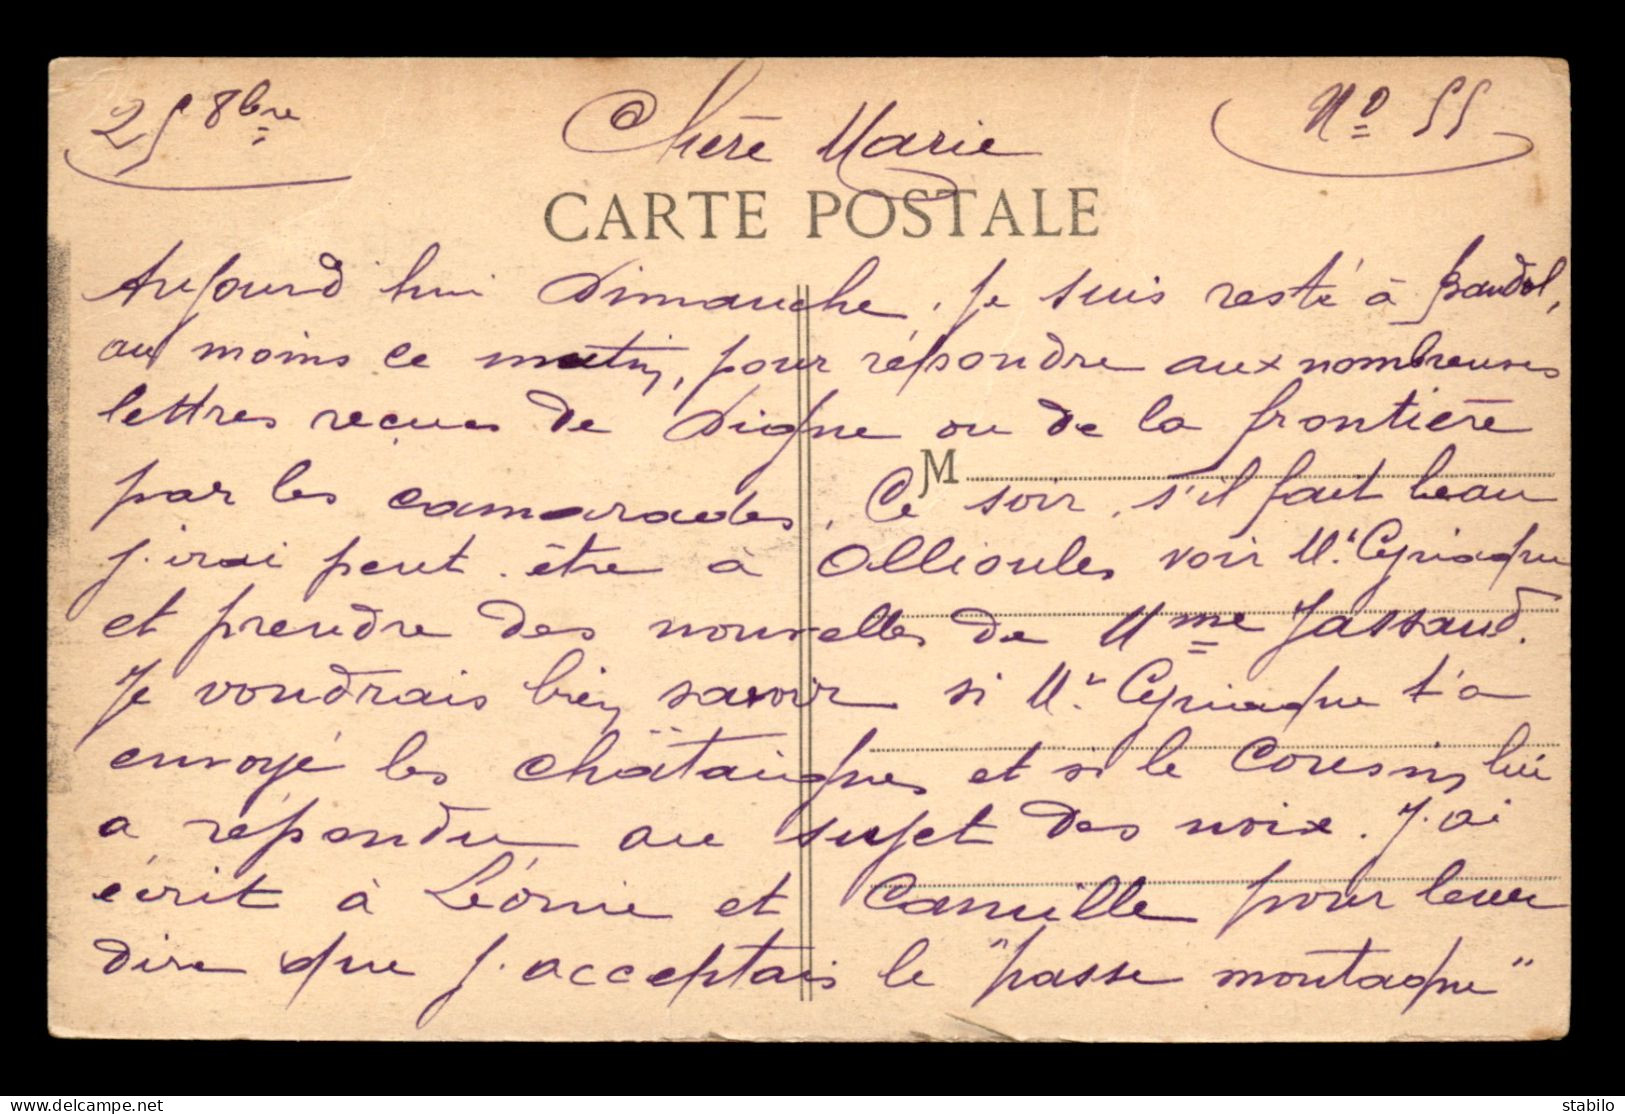 25 8bre
Chère Marie
No 55
CARTE POSTALE
Aujourd'hui Dimanche, je suis resté à Bandol,
au moins ce matin, pour répondre aux nombreuses
lettres reçues de Digne ou de la frontière
M
par les camarades. Ce soir, s'il fait beau
j'irai peut-être à Ollioules voir Mr. Cyriaque
et prendre des nouvelles de Mme Jassaud.
Je voudrais bien savoir si Mr. Cyriaque t'a
envoyé les châtaignes et si le Cousin lui
a répondu au sujet des noix. J'ai
écrit à Léonie et Camille pour leur
dire que j'acceptais le "passe montagne"
stabilo